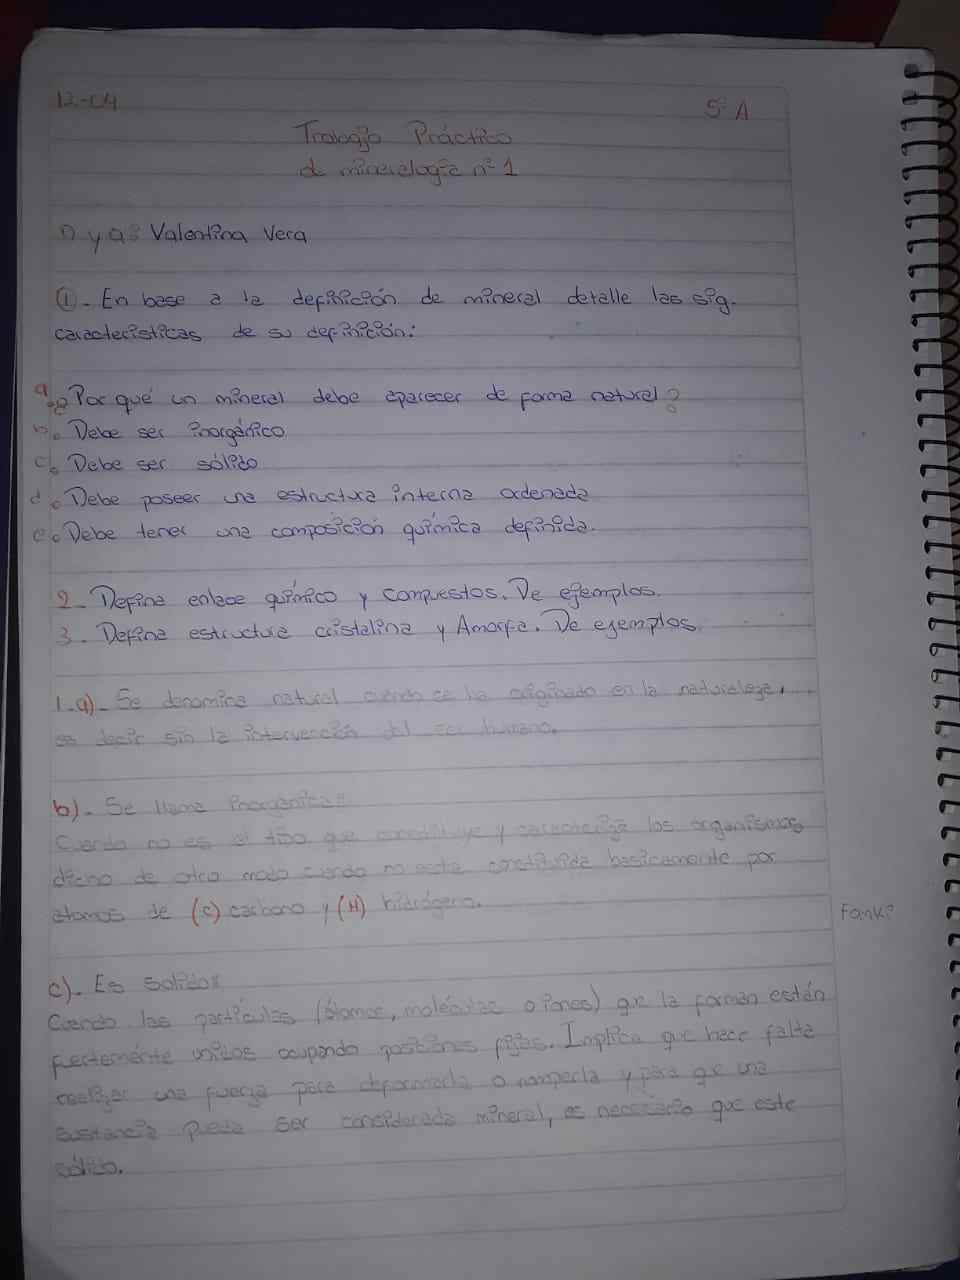 12-04
5º A
Trabajo Práctico
de mineralogía nº 1
n y a: Valentina Vera
1.- En base a la definición de mineral detalle las sig.
características de su definición:
a. ¿Por qué un mineral debe aparecer de forma natural?
b. Debe ser inorgánico
c. Debe ser sólido
d. Debe poseer una estructura interna ordenada
e. Debe tener una composición química definida.
2.- Defina enlace químico y compuestos. De ejemplos.
3.- Defina estructura cristalina y Amorfa. De ejemplos.
1-a)- Se denomina natural cuando se ha originado en la naturaleza,
es decir sin la intervención del ser humano.
b).- Se llama inorgánica:
Cuando no es el tipo que constituye y caracteriza los organismos
dicho de otro modo cuando no esta constituida basicamente por
átomos de (C) carbono y (H) hidrógeno.
Fank?
c).- Es solido:
Cuando las partículas (átomos, moléculas o iones) que la forman están
fuertemente unidos ocupando posiciones fijas. Implica que hace falta
realizar una fuerza para deformarla o romperla y para que una
sustancia pueda ser considerada mineral, es necesario que este
sólido.